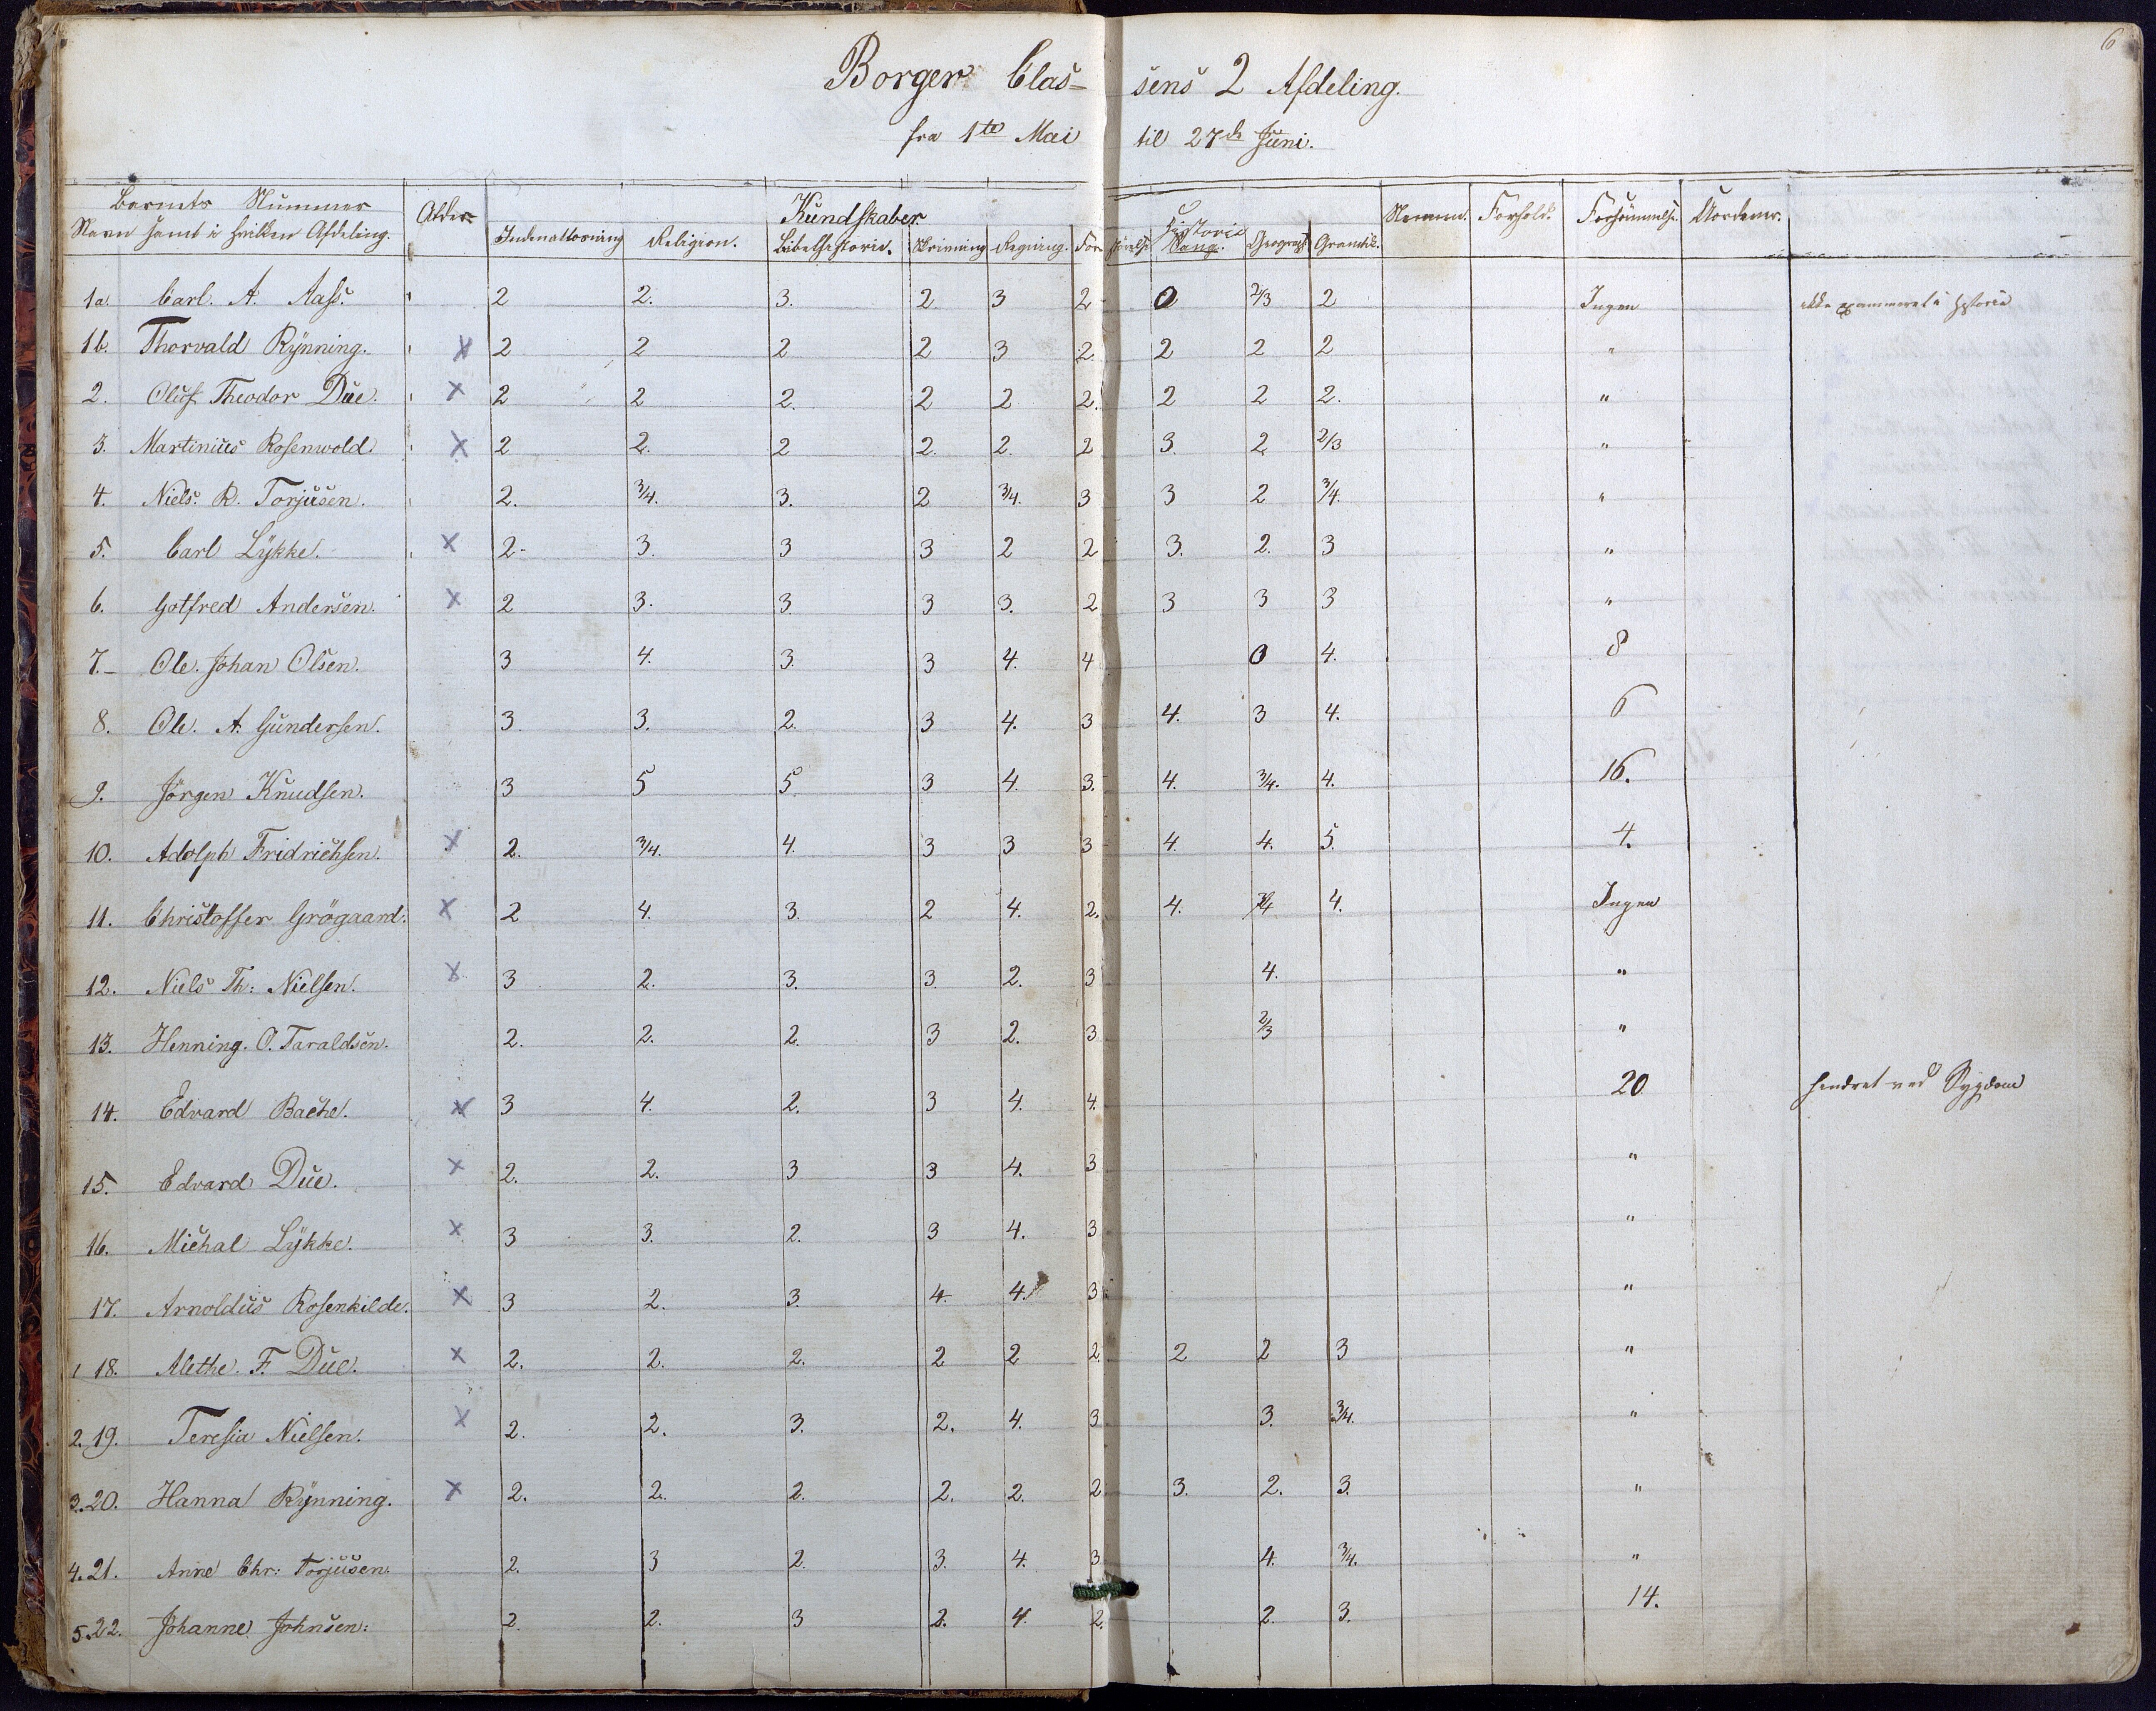 6
Borger Clas= sens 2 Afdeling.
fra 1te Mai til 27de Juni.
Barnets Nummer
Navn samt i hvilken Afdeling. Alder Kundskaber Nemme. Forhold. Forsømmelse. Uordener.
Indenatlæsning Religion. Bibelhistorie. Skrivning Regning. For- Historie Sang. Geograph Gramtik.
1a. Carl. A. Aass. 2 2. 3. 2. 3 2 0 2/3 2 Ingen ikke examineret i Historie
1b. Thorvald Rynning. x 2 2 2 2 3 2. 2 2 2 "
2. Oluf Theodor Due. x 2 2 2. 2 2 2. 2 2 2. "
3. Martinius Rosenwold. x 2 2. 2 2. 2. 2 3. 2 2/3 "
4. Niels. R. Torjusen. 2. 3/4. 3. 2 3/4. 3 3 2 3/4. "
5. Carl Lykke. x 2- 3. 3 3 2 2 3. 2. 3 "
6. Gotfred Andersen. x 2 3. 3. 3 3. 2 3 3 3 "
7.- Ole. Johan Olsen. 3 4. 3. 3 4. 4 0 4. 8
8. Ole. A. Gundersen. 3. 3. 2. 3 4. 3 4. 3 4. 6
9. Jörgen Knudsen. 3 5 5. 3 4. 3. 4. 3/4. 4. 16.
10. Adolph Fridrichsen. x 2. 3/4. 4. 3 3 3 4. 4. 5. 4.
11. Christoffer Grögaard. x 2 4. 3. 2 4. 2. 4. 3/4 4. Ingen
12. Niels Th: Nielsen. x 3 2. 3. 3. 2. 3 4. "
13. Henning. O. Taraldsen. 2. 2. 2. 3 2. 3 2/3 "
14. Edvard Bache. x 3 4. 2. 3 4. 4. 20 hindret ved Sygdom
15. Edvard Due. x 2. 2. 3 3 4. 3 "
16. Michal Lykke. x 3 3. 2. 3 4. 3 "
17. Arnoldus Rosenkilde. x 3 2. 3. 4. 4. 3 "
1 18. Alethe. F. Due. x 2. 2. 2. 2 2 2. 2 2 3 "
2. 19. Teresia Nielsen. x 2. 2. 3. 2. 4. 3 3. 3/4. "
3. 20. Hanna Rynning. x 2. 2. 2. 2. 2. 2 3. 2. 3. "
4. 21. Anne Chr: Torjusen. 2. 3 2. 3. 4. 3 4. 3/4. "
5. 22. Johanne Johnsen: 2. 2. 3 2. 4. 2. 2. 3. 14.